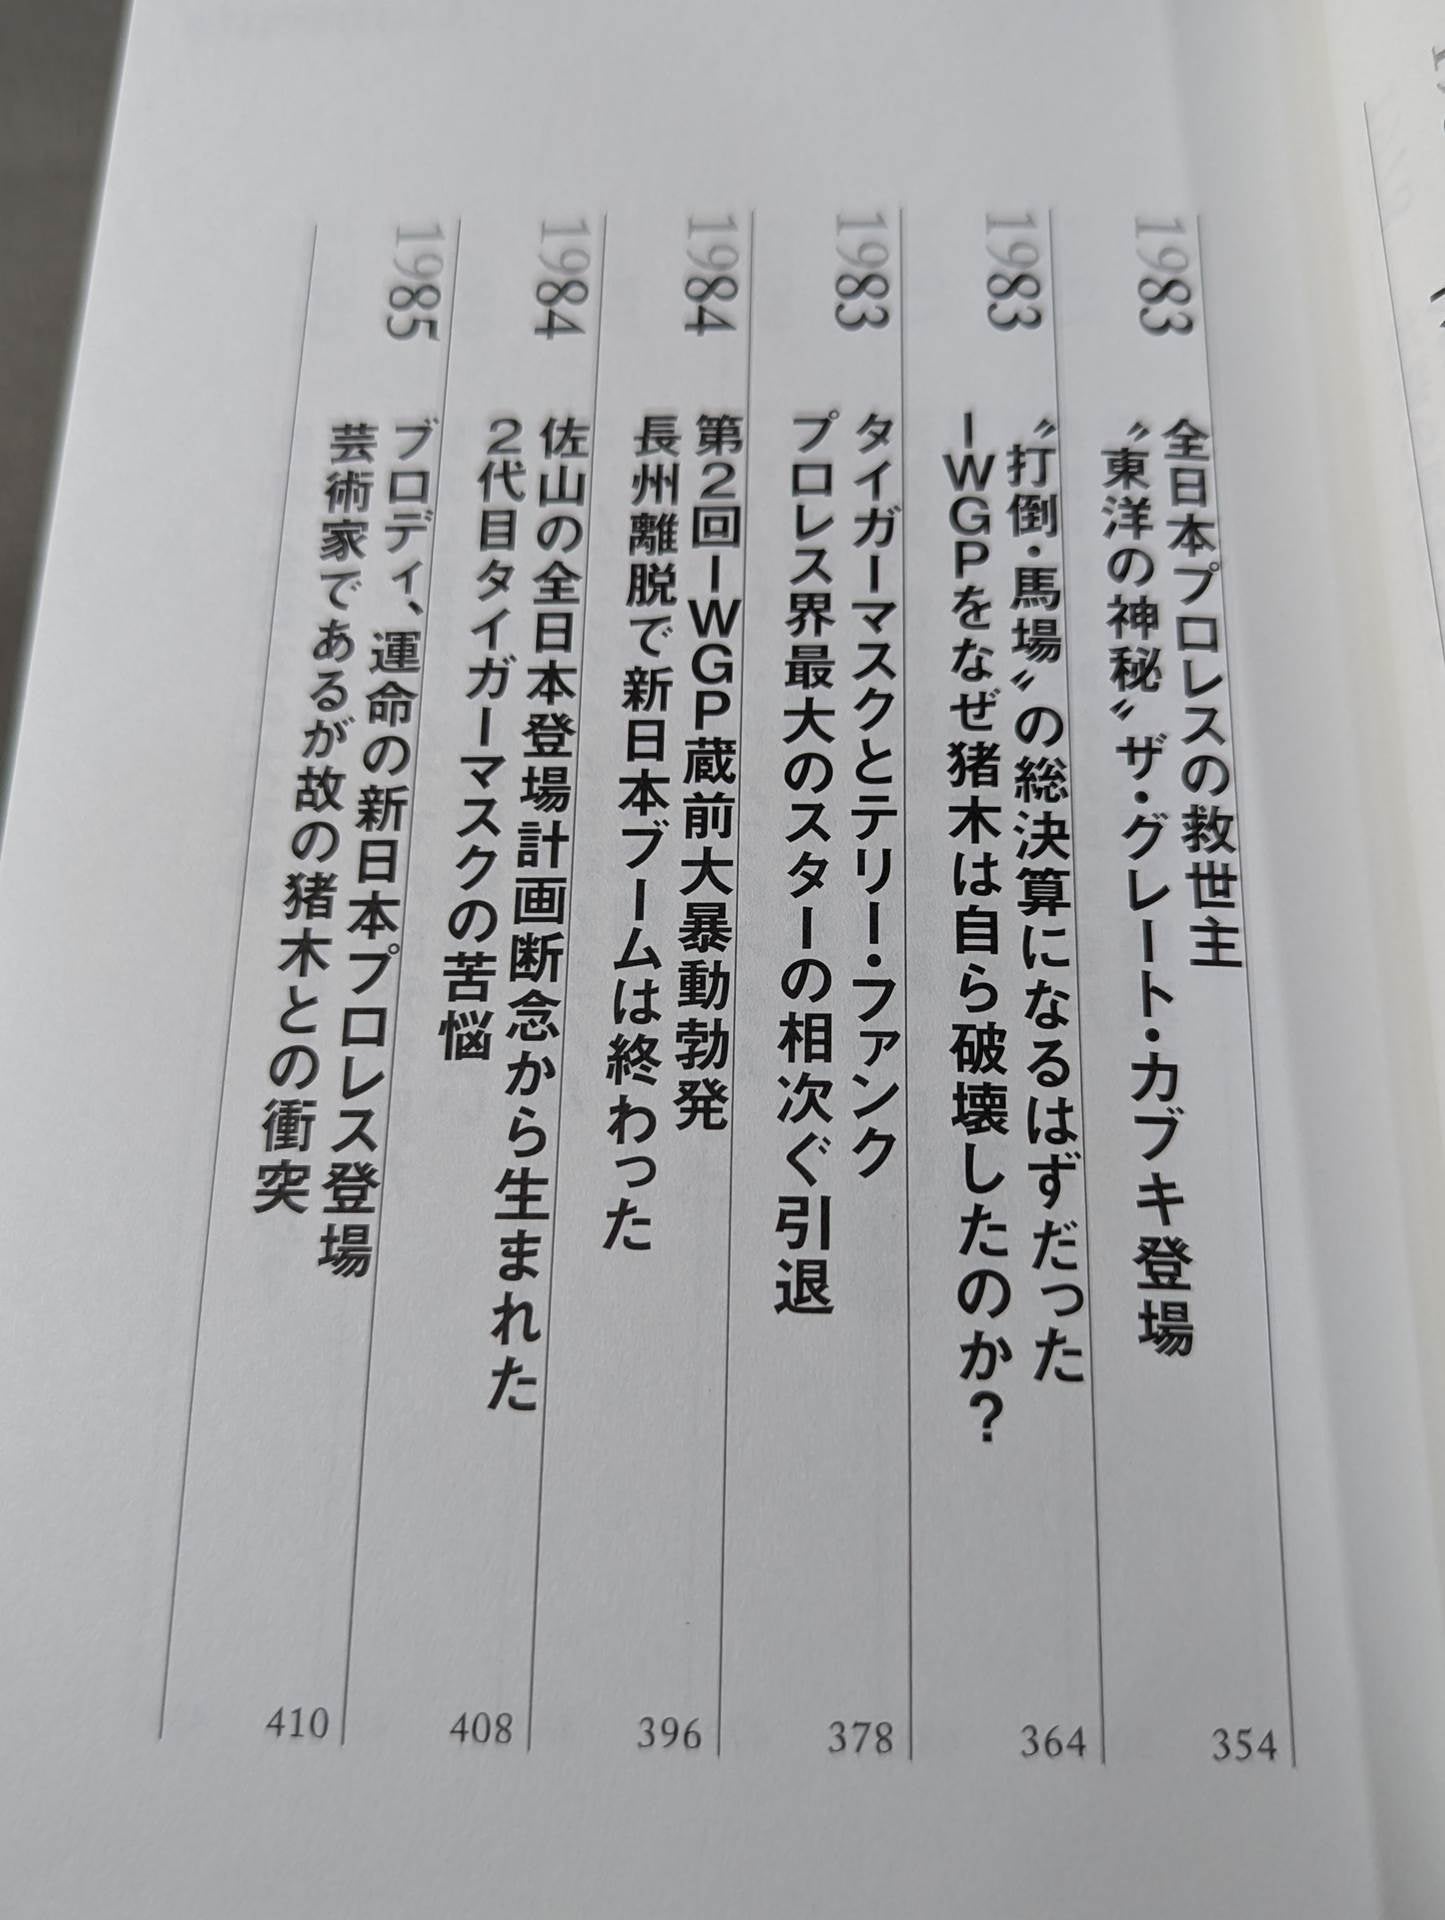 1983
全日本プロレスの救世主
〝東洋の神秘〟ザ・グレート・カブキ登場
354
1983
〝打倒・馬場〟の総決算になるはずだった
IWGPをなぜ猪木は自ら破壊したのか?
364
1983
タイガーマスクとテリー・ファンク
プロレス界最大のスターの相次ぐ引退
378
1984
第2回IWGP蔵前大暴動勃発
長州離脱で新日本ブームは終わった
396
1984
佐山の全日本登場計画断念から生まれた
2代目タイガーマスクの苦悩
408
1985
ブロディ、運命の新日本プロレス登場
芸術家であるが故の猪木との衝突
410